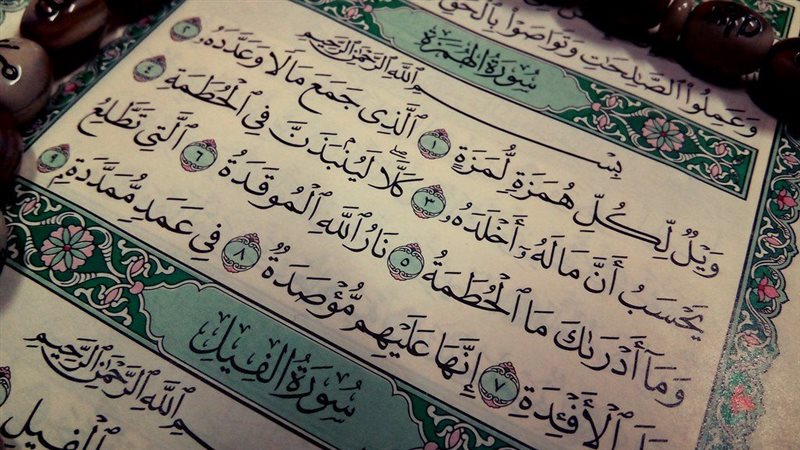 وَعَمِلُوا۟ ٱلصَّٰلِحَٰتِ وَتَوَاصَوْا۟ بِٱلْحَقِّ
سُورَةُ الهُمَزَةِ
بِسْمِ ٱللَّهِ ٱلرَّحْمَٰنِ ٱلرَّحِيمِ
وَيْلٌ لِّكُلِّ هُمَزَةٍ لُّمَزَةٍ ١ ٱلَّذِى جَمَعَ مَالًا وَعَدَّدَهُۥ ٢
يَحْسَبُ أَنَّ مَالَهُۥٓ أَخْلَدَهُۥ ٣ كَلَّا ۖ لَيُنۢبَذَنَّ فِى ٱلْحُطَمَةِ ٤
وَمَآ أَدْرَىٰكَ مَا ٱلْحُطَمَةُ ٥ نَارُ ٱللَّهِ ٱلْمُوقَدَةُ ٦ ٱلَّتِى تَطَّلِعُ
عَلَى ٱلْأَفْـِٔدَةِ ٧ إِنَّهَا عَلَيْهِم مُّؤْصَدَةٌ ٨ فِى عَمَدٍ مُّمَدَّدَةٍۭ ٩
سُورَةُ الفِيلِ
بِسْمِ ٱللَّهِ ٱلرَّحْمَٰنِ ٱلرَّحِيمِ
ٱلْفِيلِ